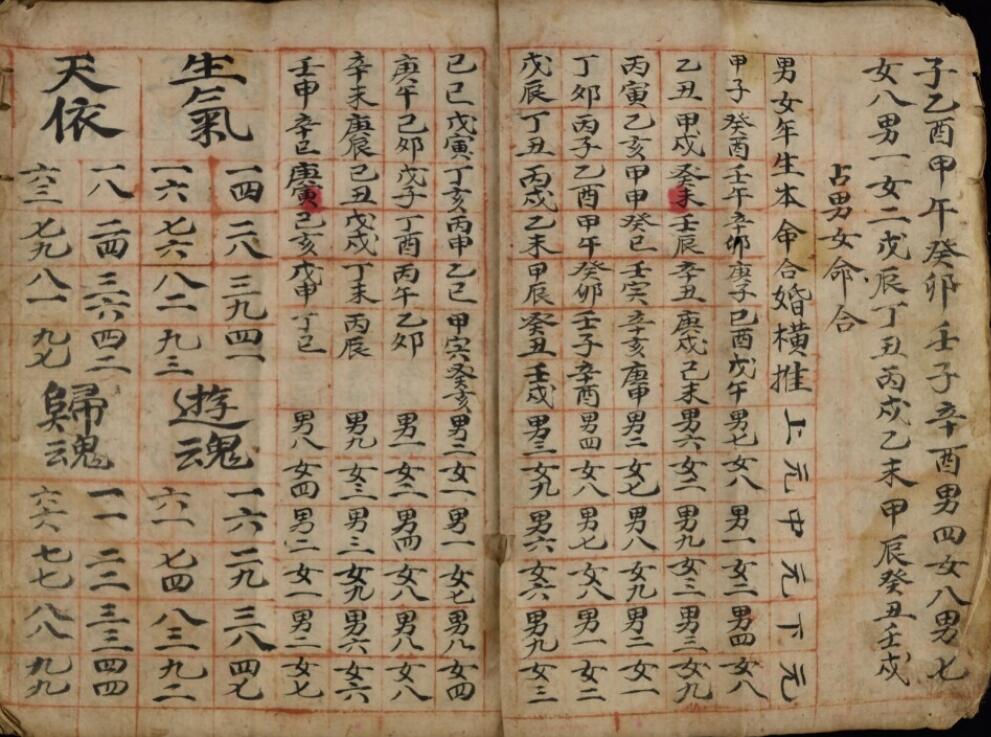 子乙酉甲午癸卯壬子辛酉男四女八男七
女八男一女二戊辰丁丑丙戌乙未甲辰癸丑壬戌
占男女命合
男女年生本命合婚橫推上元中元下元
甲子癸酉壬午辛卯庚子己酉戊午男七女八男一女二男四女八
乙丑甲戌癸未壬辰辛丑庚戌己未男六女二男九女三男三女九
丙寅乙亥甲申癸巳壬寅辛亥庚申男二女七男八女九男二女一
丁卯丙子乙酉甲午癸卯壬子辛酉男四女八男七女八男一女二
戊辰丁丑丙戌乙未甲辰癸丑壬戌男三女九男六女六男九女三
己巳戊寅丁亥丙申乙巳甲寅癸亥男二女一男一女七男八女四
庚午己卯戊子丁酉丙午乙卯男一女二男四女八男八女八
辛未庚辰己丑戊戌丁未丙辰男九女三男三女九男六女六
壬申辛巳庚寅己亥戊申丁巳男八女四男二女一男二女七
生氣
一四二八三九四一
一六七六八二九三
遊魂
一六二九三八四七
六一七四八三九二
天依
一八二四三六四二
六三七九八一九七
歸魂
一一二二三三四四
六六七七八八九九